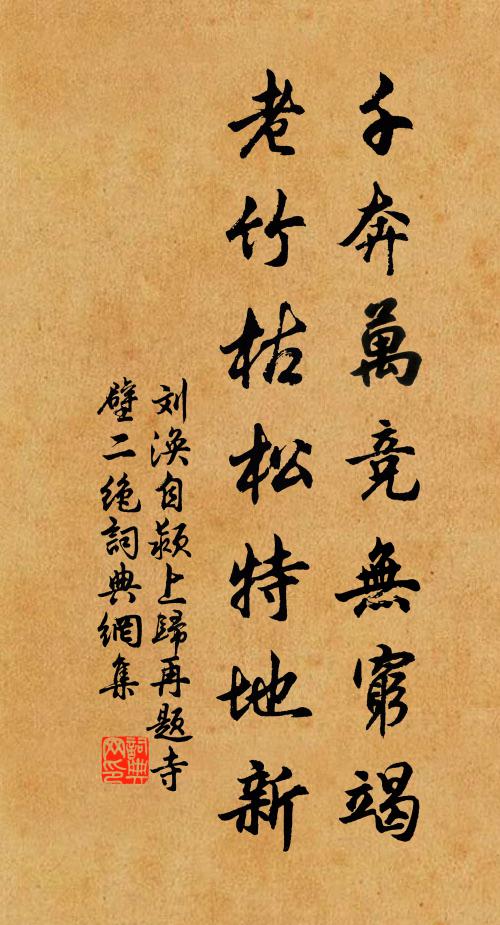 千奔萬竞無窮竭
老竹枯松特地新
刘涣自颍上歸再题寺
壁二绝詞典網集
詞典
网印